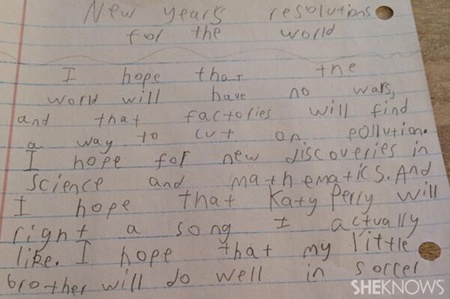 New years resolutions
for the world
I hope that the
world will have no wars,
and that factories will find
a way to cut on pollution.
I hope for new discoveries in
science and mathematics. And
I hope that Katy Perry will
right a song I actually
like. I hope that my little
brother will do well in soccer
SHEKNOWS